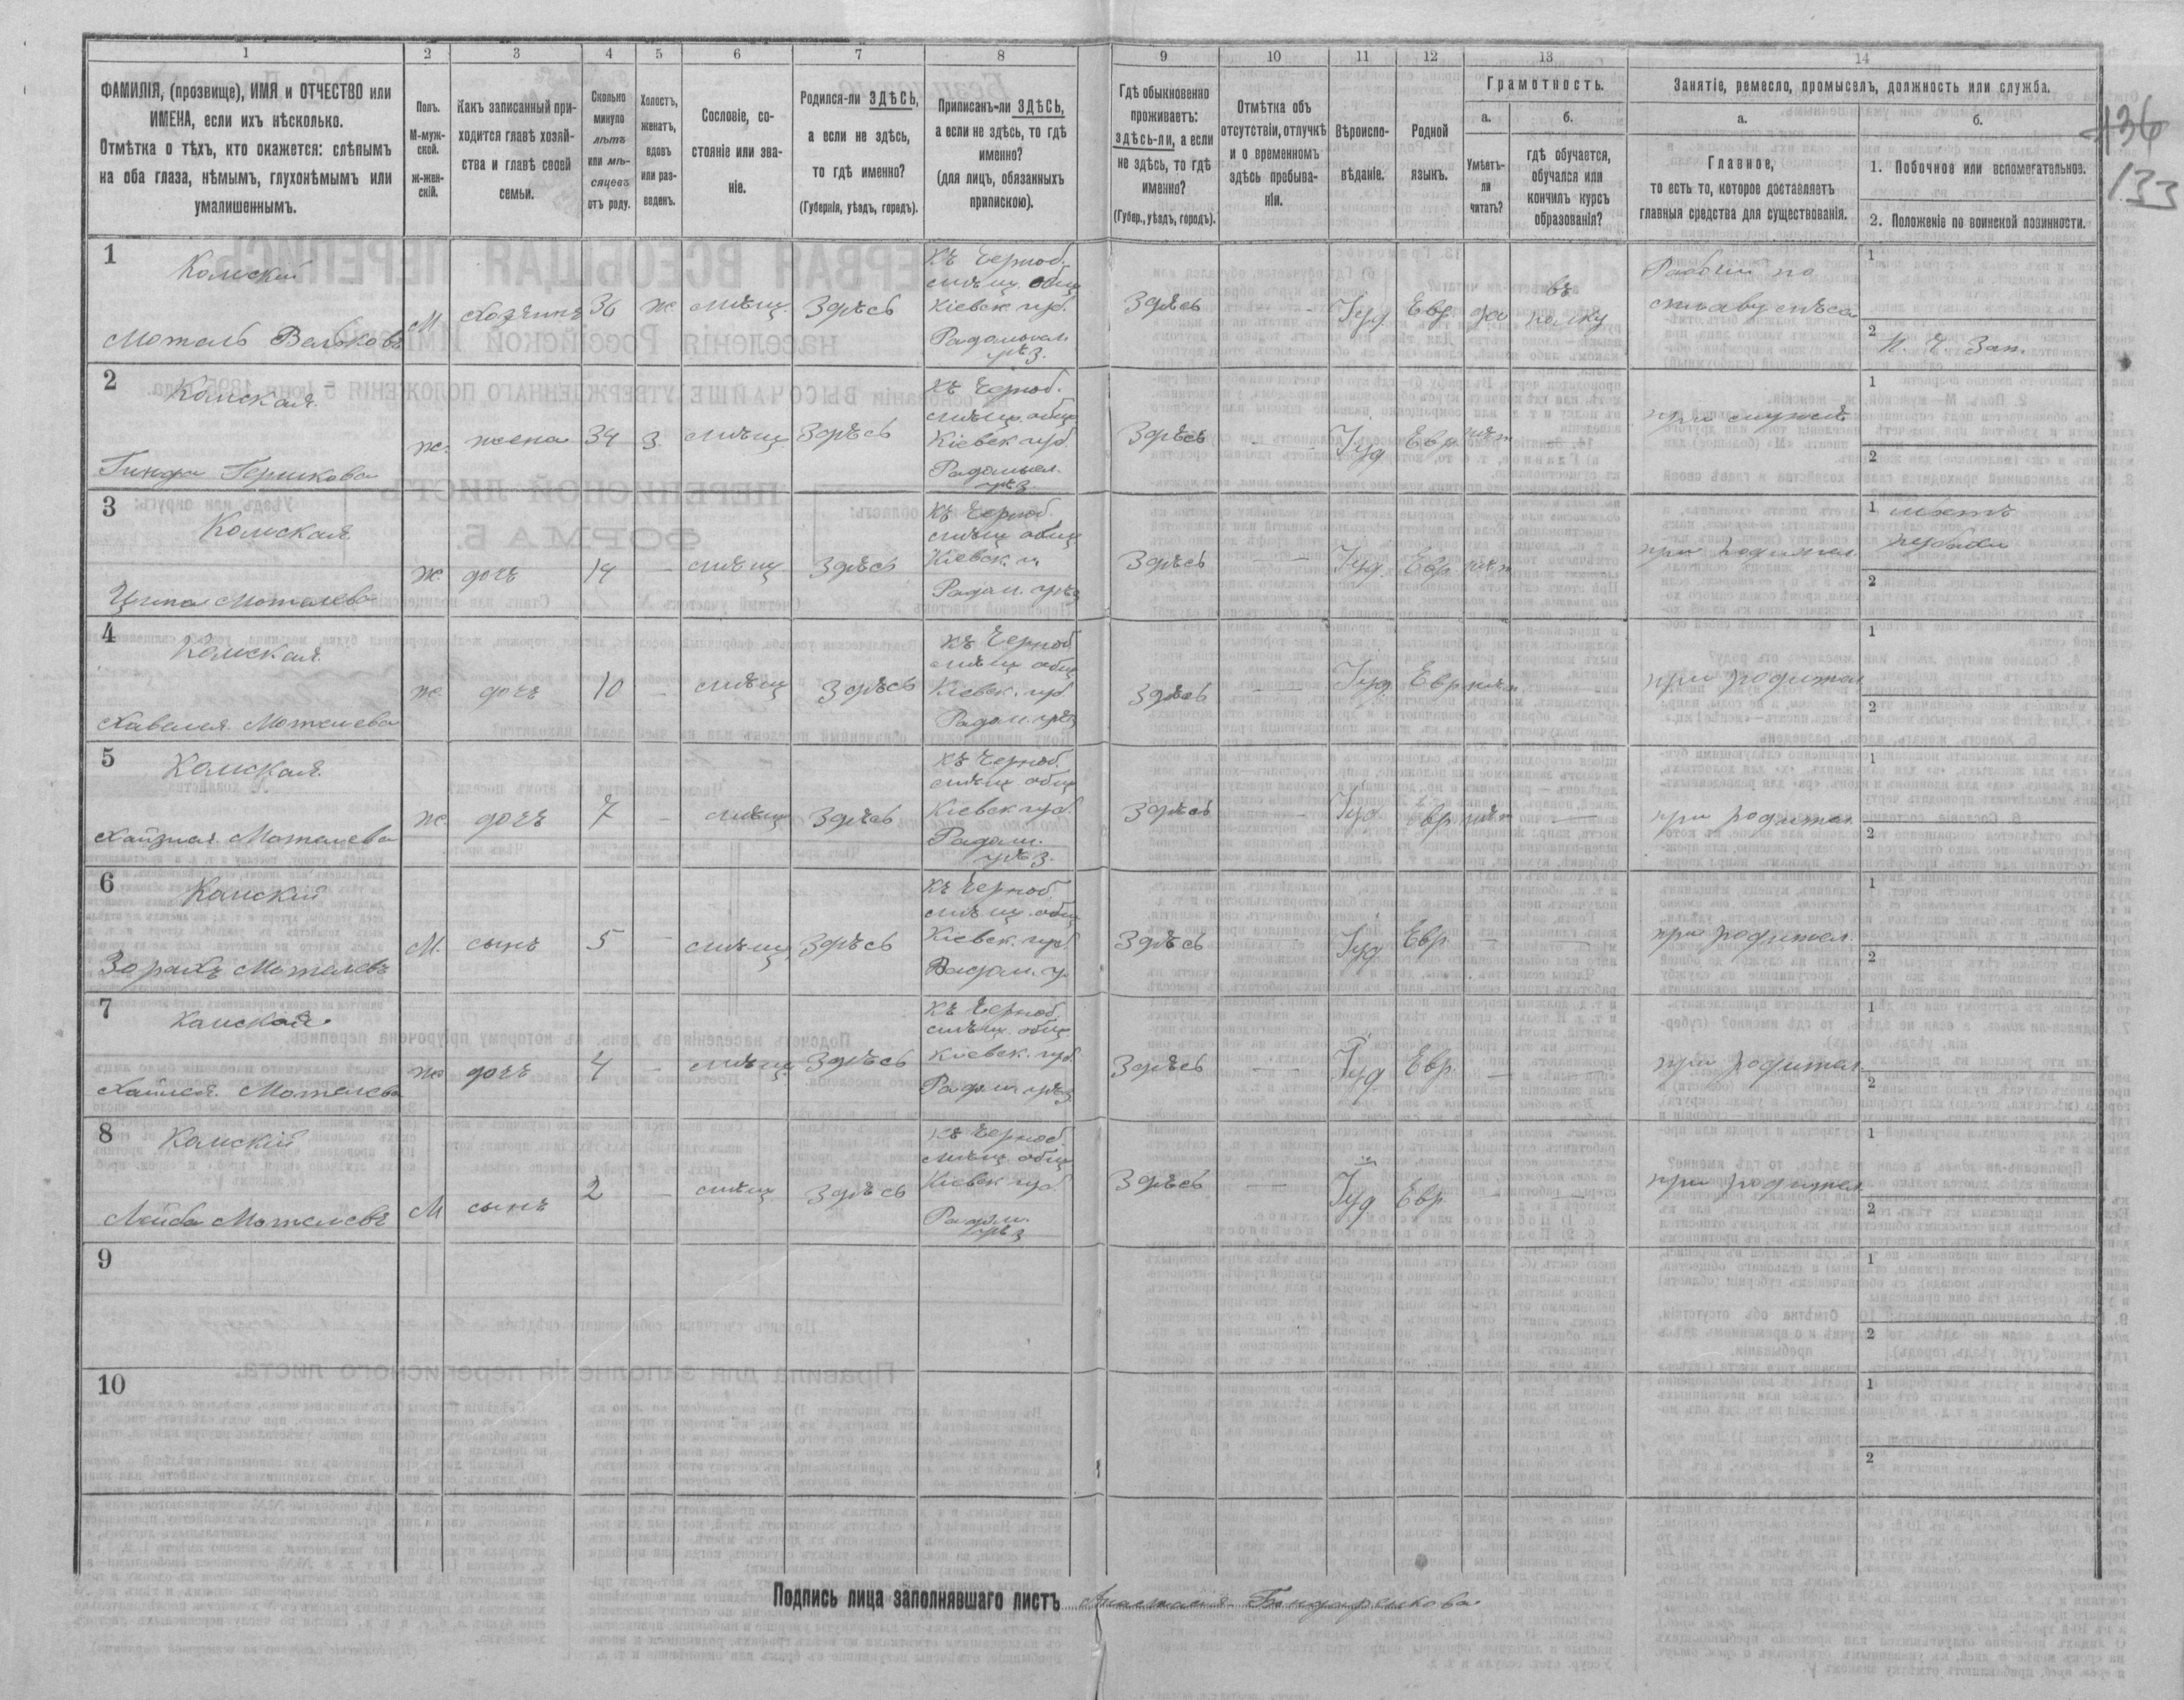 1 2 3 4 5 6 7 8 9 10 11 12 13 14
ФАМИЛІЯ, (прозвище), ИМЯ и ОТЧЕСТВО или
ИМЕНА, если ихъ нѣсколько.
Отмѣтка о тѣхъ, кто окажется: слѣпымъ
на оба глаза, нѣмымъ, глухонѣмымъ или
умалишеннымъ.
Полъ.
М-муж-
ской.
ж-жен-
скій.
Какъ записанный при-
ходится главѣ хозяй-
ства и главѣ своей
семьи.
Сколько
минуло
лѣтъ
или мѣ-
сяцевъ
отъ роду.
Холостъ,
женатъ,
вдовъ
или раз-
веденъ.
Сословіе, со-
стояніе или зва-
ніе.
Родился-ли ЗДѢСЬ,
а если не здѣсь,
то гдѣ именно?
(Губернія, уѣздъ, городъ).
Приписанъ-ли ЗДѢСЬ,
а если не здѣсь, то гдѣ
именно?
(для лицъ, обязанныхъ
припискою).
Гдѣ обыкновенно
проживаетъ:
здѣсь-ли, а если
не здѣсь, то гдѣ
именно?
(Губер., уѣздъ, городъ).
Отмѣтка объ
отсутствіи, отлучкѣ
и о временномъ
здѣсь пребыва-
ніи.
Вѣроиспо-
вѣданіе.
Родной
языкъ.
Грамотность.
а.
Умѣетъ-
ли
читать?
б.
гдѣ обучается,
обучался или
кончилъ курсъ
образованія?
Занятіе, ремесло, промыселъ, должность или служба.
а.
Главное,
то есть то, которое доставляетъ
главныя средства для существованія.
б.
1. Побочное или вспомогательное.
2. Положеніе по воинской повинности.
136
133
1
Комскій
Мотель Вольковъ
М хозяинъ 36 ж мѣщ. Здѣсь
Къ Черноб.
мѣщ. общ
Кіевск. губ.
Радомысл
уѣз.
Здѣсь — Іуд. Евр. да
въ
полку
Рабочій по
сплаву лѣса
1
2 Н. Ч. Зап.
2
Комская
Гинда Гершкова
ж. жена 34 з. мѣщ. Здѣсь
Къ Черноб.
мѣщ. общ
Кіевск. губ.
Радомысл.
уѣз.
Здѣсь — Іуд. Евр. нѣт —
при мужѣ
1
2
3
Комская
Ципа Мотелева
ж. дочь 14 - мѣщ Здѣсь
Къ Черноб.
мѣщ общ
Кіевск. г.
Радом. уѣз
Здѣсь — Іуд. Евр. нѣт
при родител
1
2
4
Комская
Хавеля Мотелева
ж. дочь 10 - мѣщ Здѣсь
Къ Черноб
мѣщ общ
Кіевск. губ
Радом. уѣз
Здѣсь — Іуд. Евр нѣт
при родител
1
2
5
Комская
Мотелева
ж. дочь 7 - мѣщ Здѣсь
Къ Черноб.
мѣщ общ
Кіевск губ.
Радом.
уѣз.
Здѣсь — Іуд. Евр нѣт —
при родител
1
2
6
Комскій
Зорахъ Мотелевъ
М. сынъ 5 - мѣщ Здѣсь
Къ Черноб
мѣщ. общ
Кіевск. губ
Радом. у.
Здѣсь — Іуд. Евр — —
при родител.
1
2
7
Комская
Мотелева
ж дочь 4 - мѣщ. Здѣсь
Къ Черноб.
мѣщ. общ
Кіевск. губ
Радом. уѣз
Здѣсь — Іуд Евр. —
при родител.
1
2
8
Комскій
Лейба Мотелевъ
М сынъ 2 - мѣщ Здѣсь
Къ Черноб.
мѣщ общ
Кіевск губ.
Радом.
уѣз
Здѣсь — Іуд Евр — —
при родител
1
2
9
1
2
10
1
2
Подпись лица заполнявшаго листъ